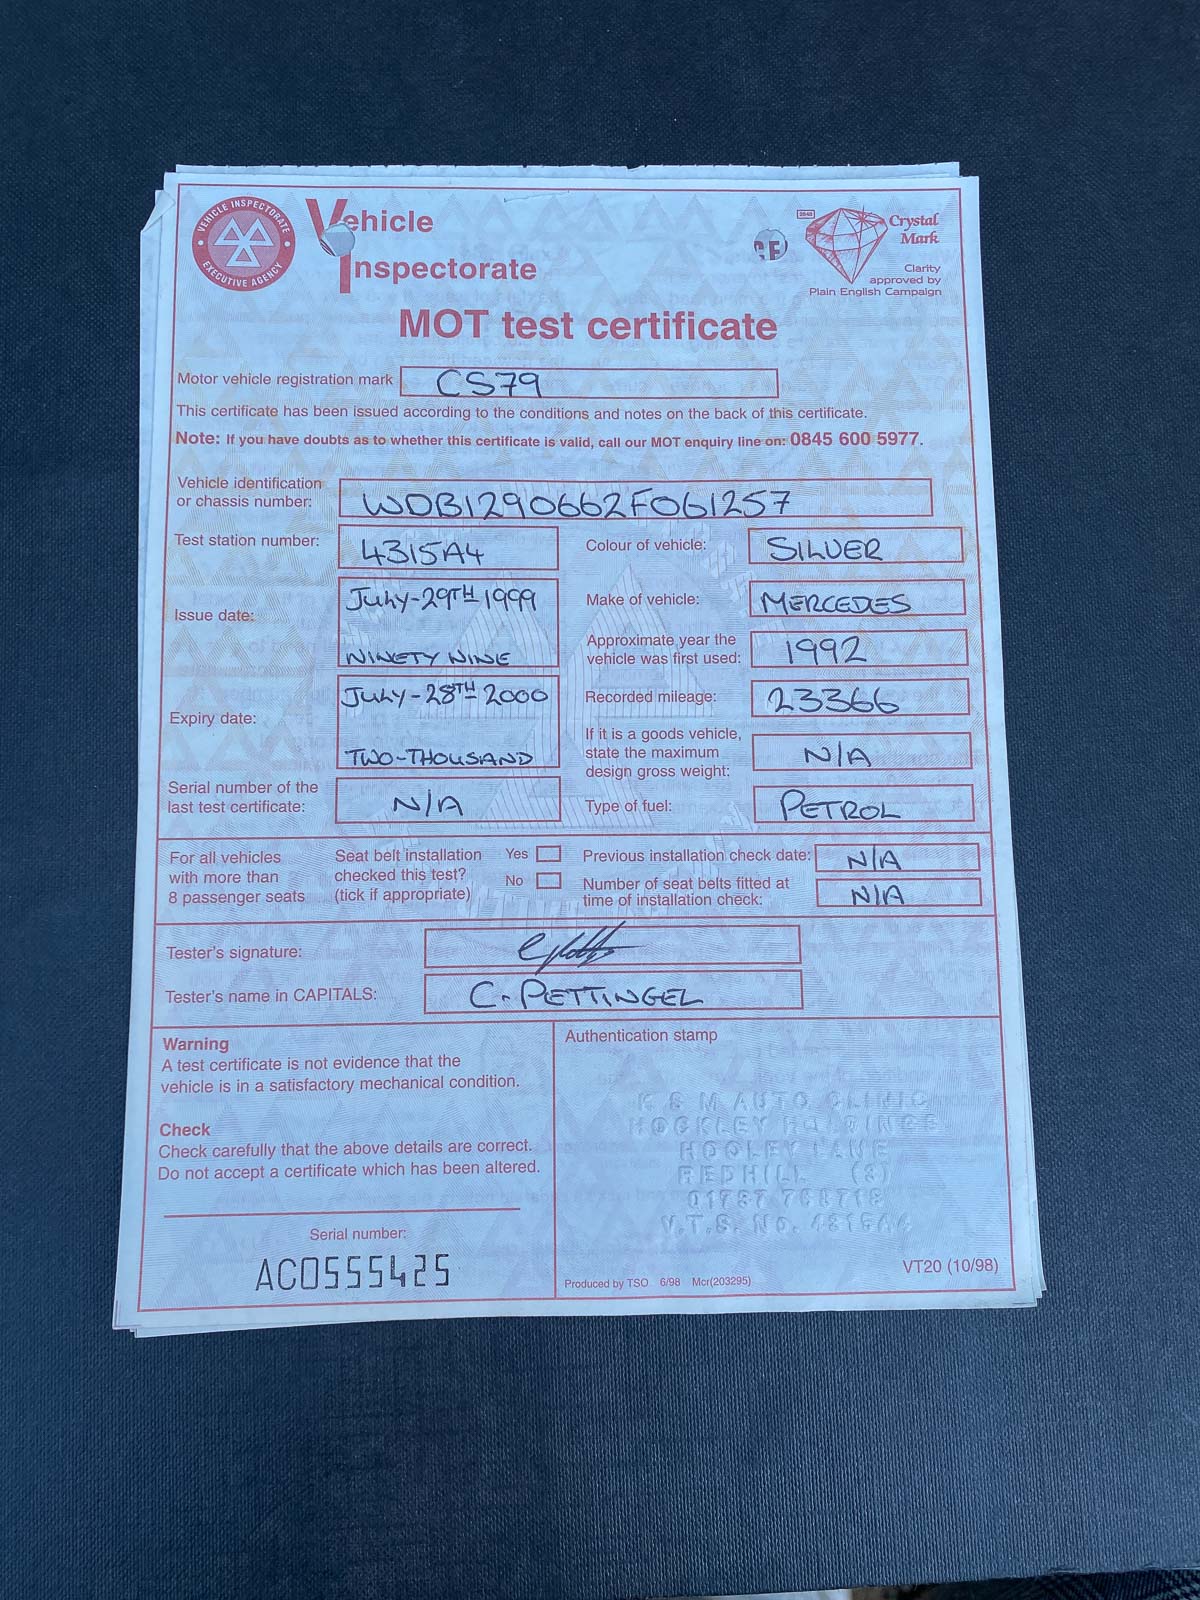 VEHICLE INSPECTORATE
EXECUTIVE AGENCY
Vehicle
Inspectorate
Crystal
Mark
Clarity
approved by
Plain English Campaign
MOT test certificate
Motor vehicle registration mark CS79
This certificate has been issued according to the conditions and notes on the back of this certificate.
Note: If you have doubts as to whether this certificate is valid, call our MOT enquiry line on: 0845 600 5977.
Vehicle identification
or chassis number: WDB1290662F061257
Test station number: 4315A4
Colour of vehicle: SILVER
Issue date: JULY-29TH 1999
NINETY NINE
Make of vehicle: MERCEDES
Approximate year the
vehicle was first used: 1992
Expiry date: JULY-28TH 2000
TWO-THOUSAND
Recorded mileage: 23366
If it is a goods vehicle,
state the maximum
design gross weight: N/A
Serial number of the
last test certificate: N/A
Type of fuel: PETROL
For all vehicles
with more than
8 passenger seats
Seat belt installation
checked this test?
(tick if appropriate)
Yes
No
Previous installation check date: N/A
Number of seat belts fitted at
time of installation check: N/A
Tester's signature:
Tester's name in CAPITALS: C. PETTINGEL
Warning
A test certificate is not evidence that the
vehicle is in a satisfactory mechanical condition.
Check
Check carefully that the above details are correct.
Do not accept a certificate which has been altered.
Serial number:
AC0555425
Authentication stamp
K & M AUTO CLINIC
HOCKLEY HOLDINGS
HOOLEY LANE
REDHILL (S)
01737
V.T.S. No. 4315A4
Produced by TSO 6/98 Mcr(203295)
VT20 (10/98)